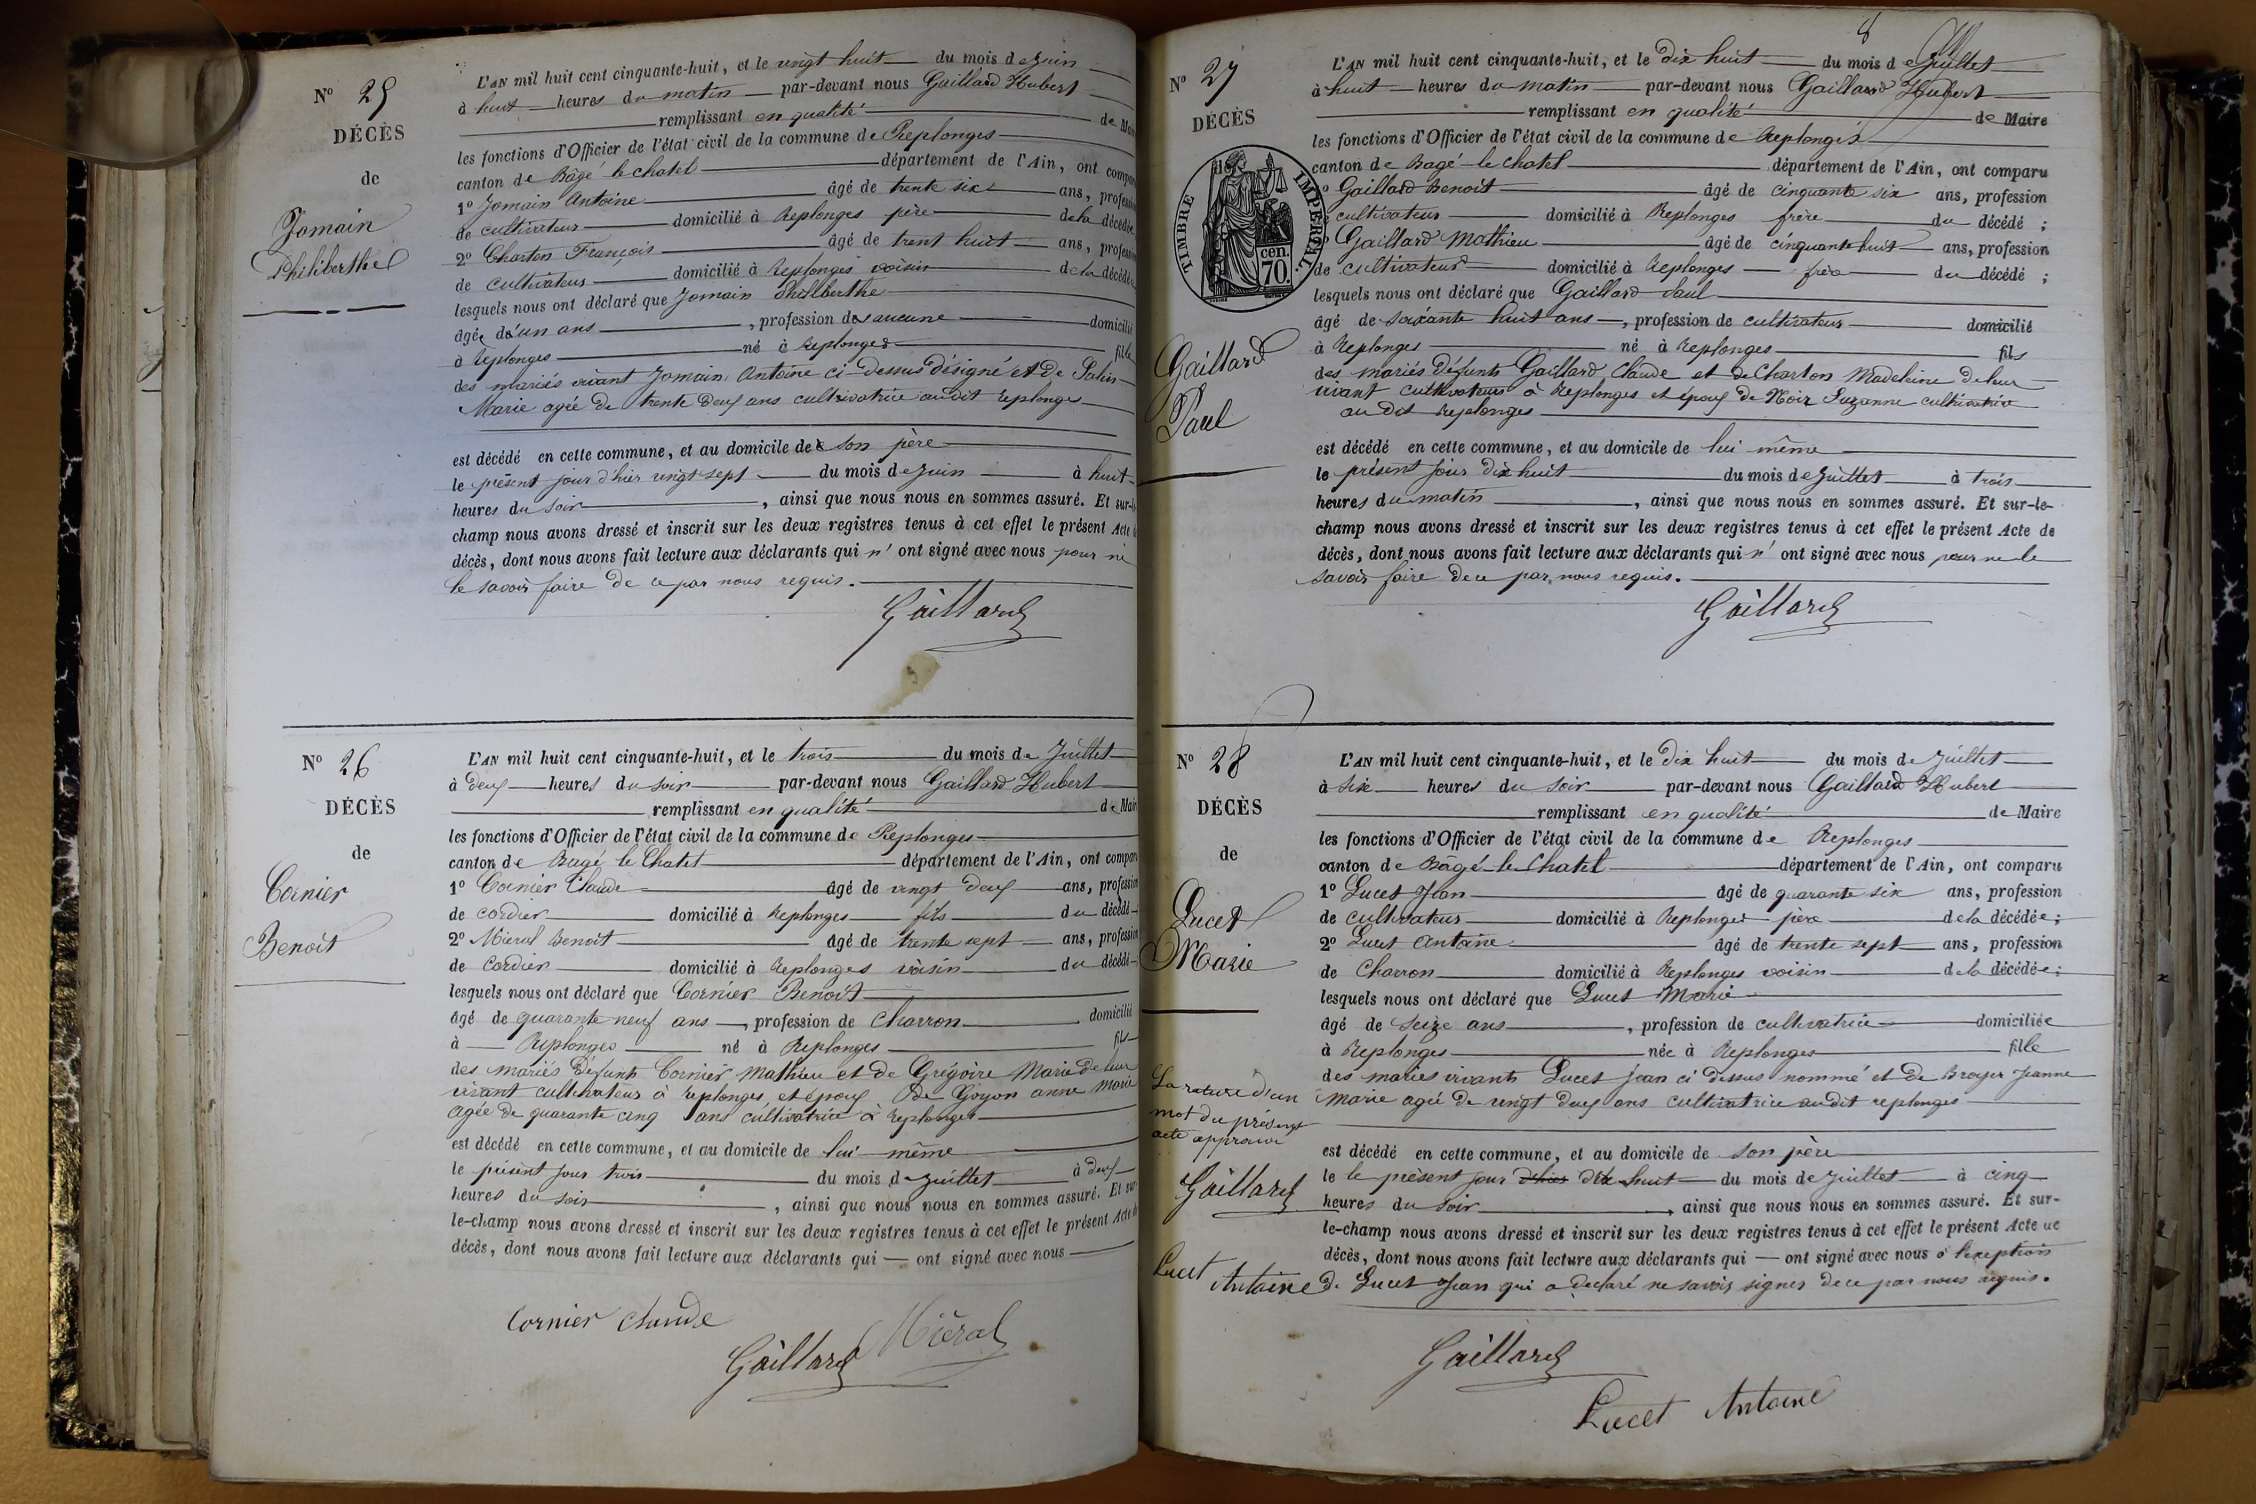 N° 25
DÉCÈS
de
Jomain
Philiberthe
L'AN mil huit cent cinquante-huit, et le vingt huit du mois de Juin
à huit heures du matin par-devant nous Gaillard Hubert
remplissant en qualité de Mai
les fonctions d'Officier de l'état civil de la commune de Replonges
canton de Bâgé le chatel département de l'Ain, ont compar
1° Jomain Antoine âgé de trente six ans, profession
de cultivateur domicilié à Replonges père de la décédée
2° Charton François âgé de trent huit ans, profession
de cultivateur domicilié à Replonges voisin de la décédée
lesquels nous ont déclaré que Jomain Philberthe
âgée d'un ans, profession de aucune domicilié
à Replonges né à Replonges fille
des mariés vivant Jomain Antoine ci-dessus désigné et de
Marie agée de trente deux ans cultivatrice audit replonges
est décédé en cette commune, et au domicile de son père
le présent jour d'hier vingt sept du mois de Juin à huit
heures du soir, ainsi que nous nous en sommes assuré. Et sur-le-
champ nous avons dressé et inscrit sur les deux registres tenus à cet effet le présent Acte de
décès, dont nous avons fait lecture aux déclarants qui n' ont signé avec nous pour ne
le savoir faire de ce par nous requis.
Gaillard
N° 26
DÉCÈS
de
Cornier
Benoit
L'AN mil huit cent cinquante-huit, et le trois du mois de Juillet
à deux heures du soir par-devant nous Gaillard Hubert
remplissant en qualité de Mair
les fonctions d'Officier de l'état civil de la commune de Replonges
canton de Bagé le Chatel département de l'Ain, ont compar
1° Cornier Claude âgé de vingt deux ans, profession
de cordier domicilié à Replonges fils du décédé
2° Miéral Benoit âgé de trente sept ans, profession
de cordier domicilié à Replonges voisin du décédé
lesquels nous ont déclaré que Cornier Benoit
âgé de quarante neuf ans, profession de Charron domicilié
à Replonges né à Replonges fils
des mariés défunts Cornier Mathieu et de Grégoire Marie de leur
vivant cultivateurs à replonges, et époux De Goyon anne Marie
agée de quarante cinq ans cultivatrice à Replonges
est décédé en cette commune, et au domicile de lui même
le présent jour trois du mois de Juillet à deux
heures du soir, ainsi que nous nous en sommes assuré. Et sur
le-champ nous avons dressé et inscrit sur les deux registres tenus à cet effet le présent Acte de
décès, dont nous avons fait lecture aux déclarants qui — ont signé avec nous
Cornier claude
Gaillard Miéral
8
N° 27
DÉCÈS
de
TIMBRE IMPÉRIAL.
70 cen.
Gaillard
Paul
L'AN mil huit cent cinquante-huit, et le dix huit du mois de Juillet
à huit heures du matin par-devant nous Gaillard Hubert
remplissant en qualité de Maire
les fonctions d'Officier de l'état civil de la commune de Replonges
canton de Bagé-le-Chatel département de l'Ain, ont comparu
1° Gaillard Benoit âgé de cinquante six ans, profession
cultivateur domicilié à Replonges frère du décédé ;
Gaillard Mathieu âgé de cinquante huit ans, profession
de cultivateur domicilié à Replonges frère du décédé ;
lesquels nous ont déclaré que Gaillard Paul
âgé de soixante huit ans, profession de cultivateur domicilié
à Replonges né à Replonges fils
des mariés défunts Gaillard Claude et de Charton Madeleine de leur
vivant cultivateurs à Replonges et époux de Noir Suzanne cultivatrice
au dit Replonges
est décédé en cette commune, et au domicile de lui même
le présent jour dix huit du mois de Juillet à trois
heures du matin, ainsi que nous nous en sommes assuré. Et sur-le-
champ nous avons dressé et inscrit sur les deux registres tenus à cet effet le présent Acte de
décès, dont nous avons fait lecture aux déclarants qui n' ont signé avec nous pour ne le
savoir faire de ce par nous requis.
Gaillard
N° 28
DÉCÈS
de
Lucet
Marie
La rature d'un
mot du présent
acte approuvé
Gaillard
Lucet
Antoine
L'AN mil huit cent cinquante-huit, et le dix huit du mois de Juillet
à six heures du soir par-devant nous Gaillard Hubert
remplissant en qualité de Maire
les fonctions d'Officier de l'état civil de la commune de Replonges
canton de Bâgé-le-Chatel département de l'Ain, ont comparu
1° Lucet Jean âgé de quarante six ans, profession
de cultivateur domicilié à Replonges père de la décédée ;
2° Lucet Antoine âgé de trente sept ans, profession
de Charron domicilié à Replonges voisin de la décédée ;
lesquels nous ont déclaré que Lucet Marie
âgé de seize ans, profession de cultivatrice domiciliée
à Replonges née à Replonges fille
des mariés vivants Lucet Jean ci dessus nommé et de Broyer Jeanne
Marie agée de vingt deux ans cultivatrice audit replonges
est décédé en cette commune, et au domicile de son père
le le présent jour d'hier dix huit du mois de Juillet à cinq
heures du soir, ainsi que nous nous en sommes assuré. Et sur-
le-champ nous avons dressé et inscrit sur les deux registres tenus à cet effet le présent Acte de
décès, dont nous avons fait lecture aux déclarants qui — ont signé avec nous à l'exception
de Lucet Jean qui a déclaré ne savoir signer de ce par nous requis.
Gaillard
Lucet Antoine